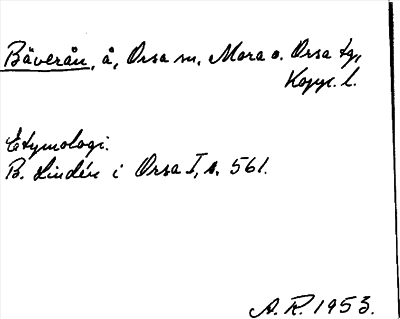 Bäverån, å, Orsa sn, Mora o. Orsa tg,
Kopp. l.
Etymologi:
B. Lindén i Orsa I, s. 561.
A. R. 1953.